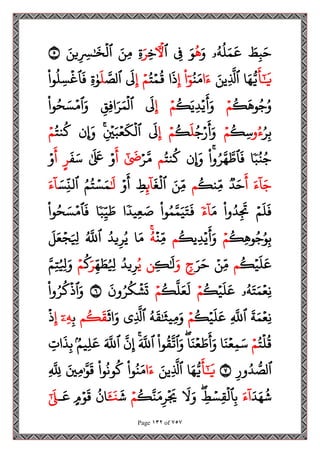 حَبِطَ عَمَلُهُۥ وَهُوَ فِى ٱلْأَخِرَةِ مِنَ ٱلْخَٰسِرِينَ ٥
يَٰٓأَيُّهَا ٱلَّذِينَ ءَامَنُوٓا۟ إِذَا قُمْتُمْ إِلَى ٱلصَّلَوٰةِ فَٱغْسِلُوا۟
وُجُوهَكُمْ وَأَيْدِيَكُمْ إِلَى ٱلْمَرَافِقِ وَٱمْسَحُوا۟
بِرُءُوسِكُمْ وَأَرْجُلَكُمْ إِلَى ٱلْكَعْبَيْنِ ۚ وَإِن كُنتُمْ
جُنُبًا فَٱطَّهَّرُوا۟ ۚ وَإِن كُنتُم مَّرْضَىٰٓ أَوْ عَلَىٰ سَفَرٍ أَوْ
جَآءَ أَحَدٌ مِّنكُم مِّنَ ٱلْغَآئِطِ أَوْ لَٰمَسْتُمُ ٱلنِّسَآءَ
فَلَمْ تَجِدُوا۟ مَآءً فَتَيَمَّمُوا۟ صَعِيدًا طَيِّبًا فَٱمْسَحُوا۟
بِوُجُوهِكُمْ وَأَيْدِيكُم مِّنْهُ ۚ مَا يُرِيدُ ٱللَّهُ لِيَجْعَلَ
عَلَيْكُم مِّنْ حَرَجٍ وَلَٰكِن يُرِيدُ لِيُطَهِّرَكُمْ وَلِيُتِمَّ
نِعْمَتَهُۥ عَلَيْكُمْ لَعَلَّكُمْ تَشْكُرُونَ ٦ وَٱذْكُرُوا۟
نِعْمَةَ ٱللَّهِ عَلَيْكُمْ وَمِيثَٰقَهُ ٱلَّذِى وَاثَقَكُم بِهِۦٓ إِذْ
قُلْتُمْ سَمِعْنَا وَأَطَعْنَا ۖ وَٱتَّقُوا۟ ٱللَّهَ ۚ إِنَّ ٱللَّهَ عَلِيمٌۢ بِذَاتِ
ٱلصُّدُورِ ٧ يَٰٓأَيُّهَا ٱلَّذِينَ ءَامَنُوا۟ كُونُوا۟ قَوَّٰمِينَ لِلَّهِ
شُهَدَآءَ بِٱلْقِسْطِ ۖ وَلَا يَجْرِمَنَّكُمْ شَنَـَٔانُ قَوْمٍ عَلَىٰٓ
Page ١٣٢ of ٧٥٧